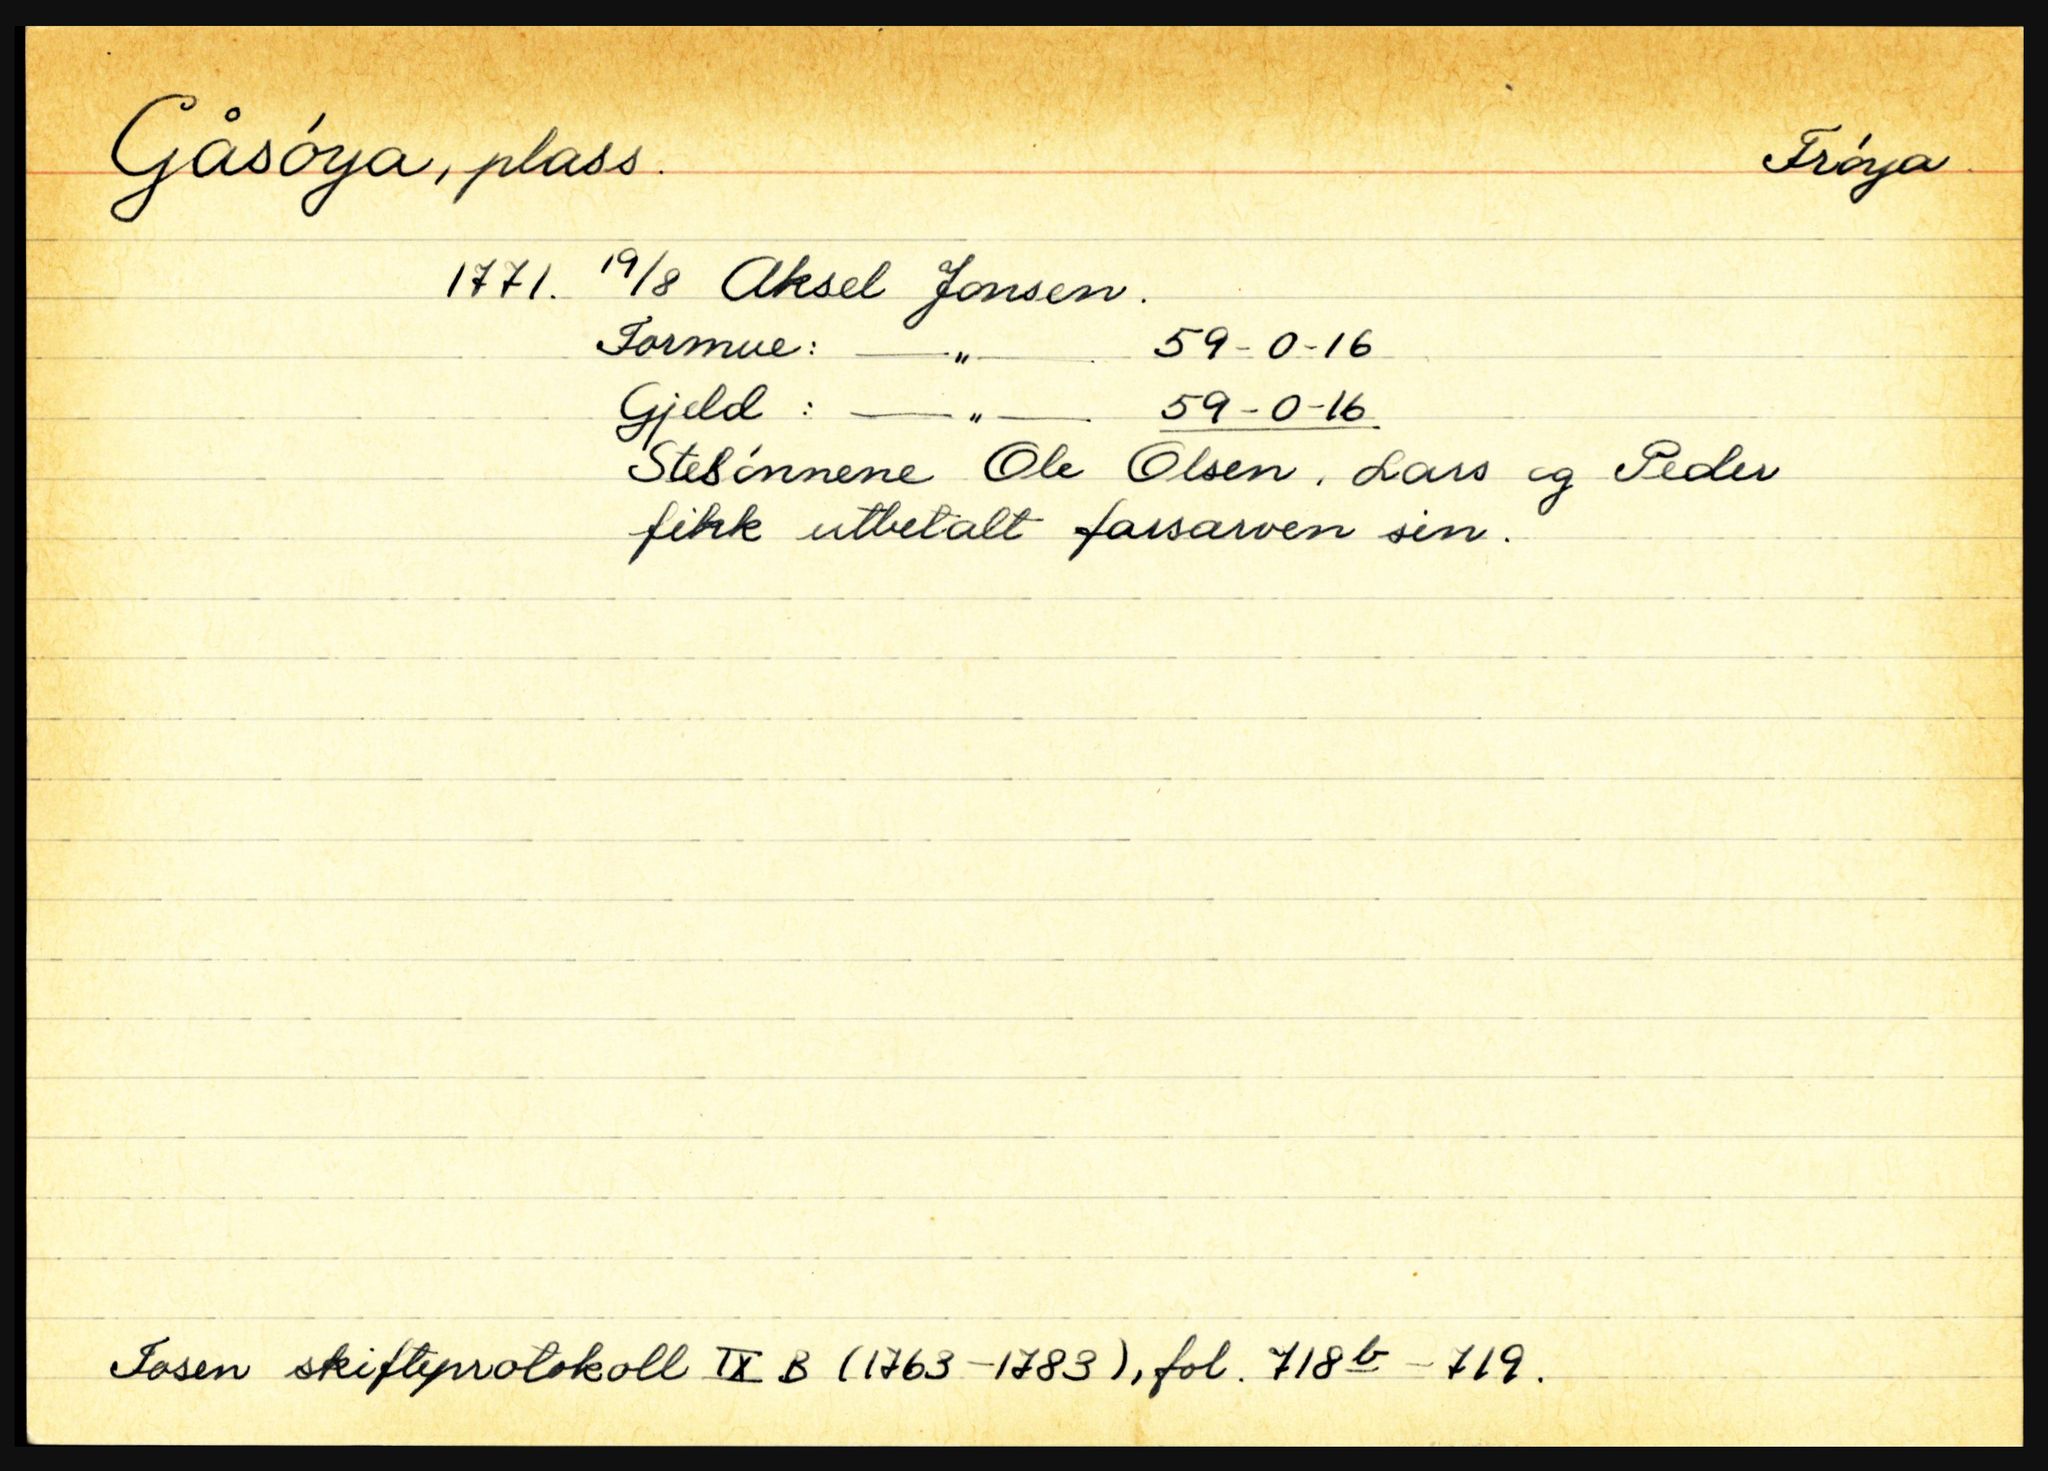 Gåsóya, plass. Fróya
1771. 19/8 Aksel Jonsen.
Formue: —„— 59-0-16
Gjeld : —„— 59-0-16
Stesónnene Ole Olsen, Lars og Peder
fikk utbetalt farsarven sin.
Fosen skifteprotokoll IX B (1763-1783), fol. 718b - 719.